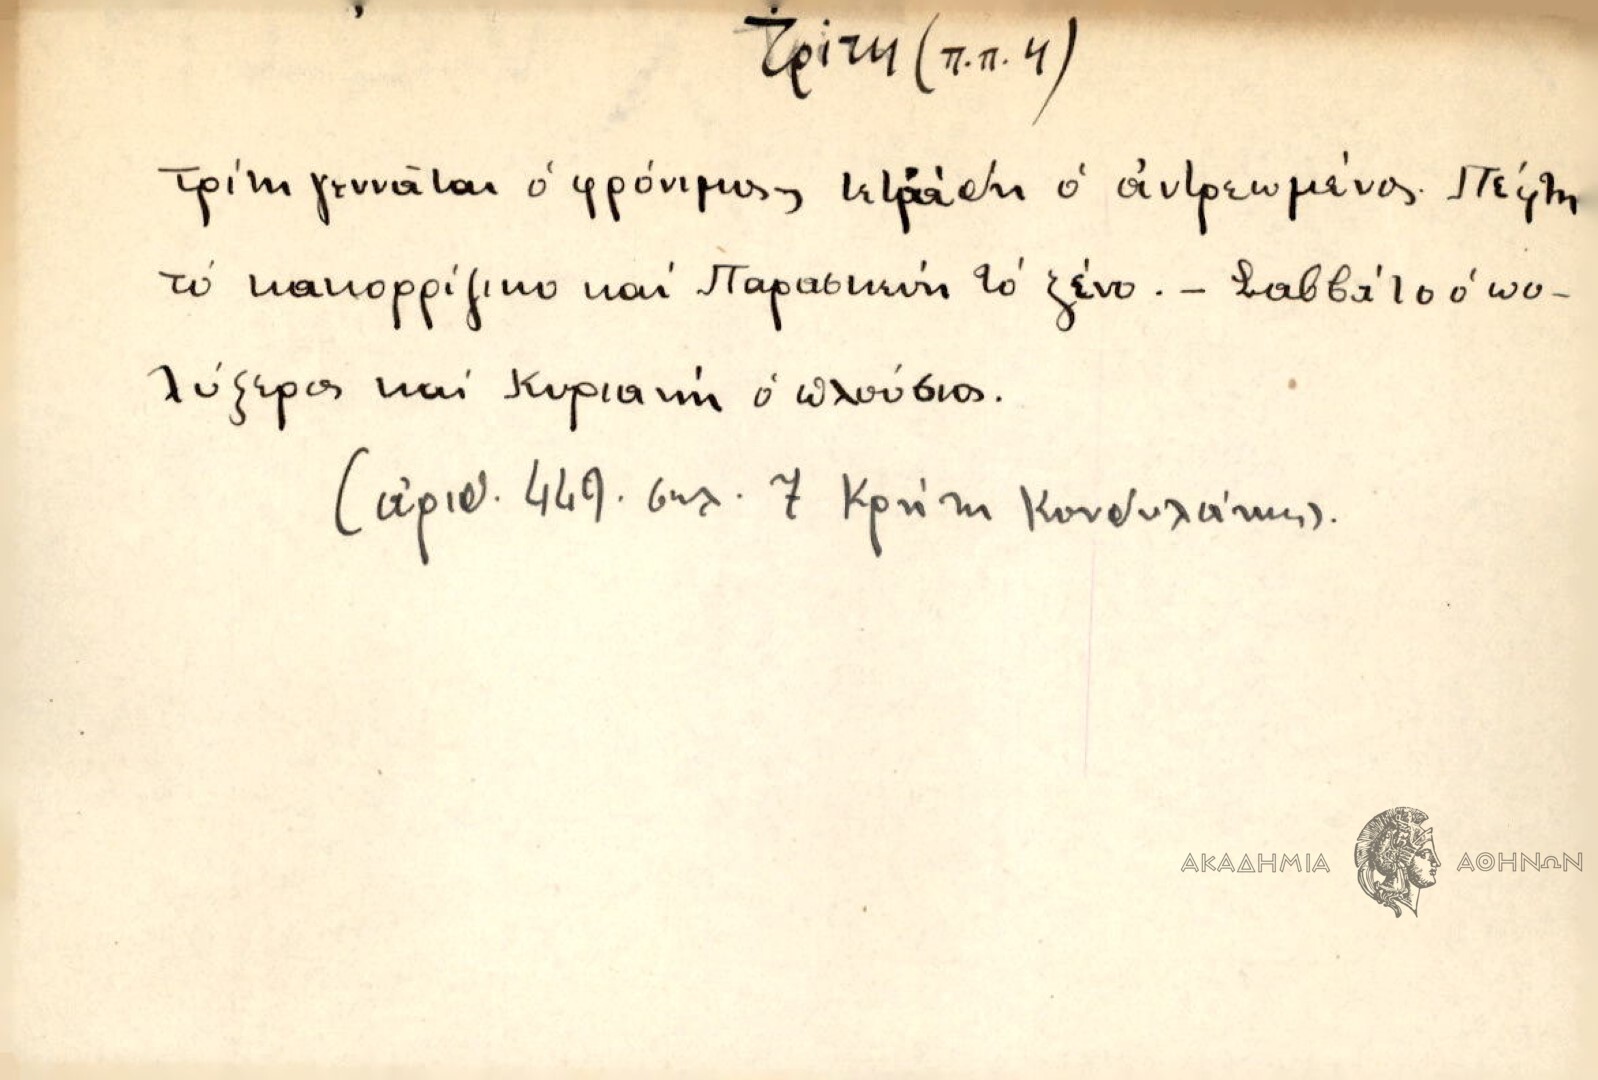 Τρίτη (π.π. 4)
Τρίτη γεννᾶται ὁ φρόνιμος, τετράδη ὁ ἀντρειωμένος. Πέφτη
τό κακορρίζικο καί Παρασκευή τό ξένο. – Σαββάτο ὁ πο-
λύξερος καί Κυριακή ὁ πλούσιος.
(ἀριθ. 449. σελ. 7 Κρήτη Κονδυλάκης).
ΑΚΑΔΗΜΙΑ ΑΘΗΝΩΝ